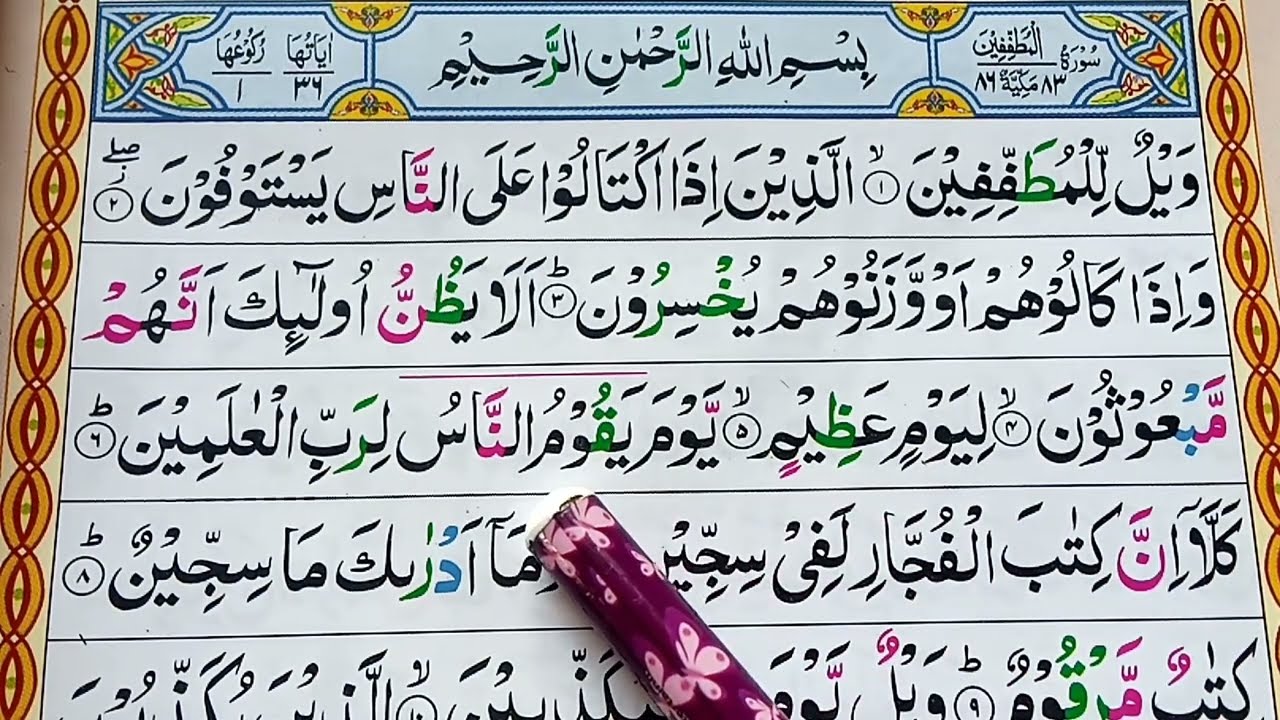 سُوْرَةُ الْمُطَفِّفِيْنَ ٨٣ مَكِّيَّةٌ ٨٦ بِسْمِ اللهِ الرَّحْمٰنِ الرَّحِيْمِ اٰيَاتُهَا ٣٦ رُكُوْعُهَا ١
وَيْلٌ لِّلْمُطَفِّفِيْنَ ۙ ١ الَّذِيْنَ اِذَا اكْتَالُوْا عَلَى النَّاسِ يَسْتَوْفُوْنَ ۖ ٢
وَاِذَا كَالُوْهُمْ اَوْ وَّزَنُوْهُمْ يُخْسِرُوْنَ ؕ ٣ اَلَا يَظُنُّ اُولٰٓئِكَ اَنَّهُمْ
مَّبْعُوْثُوْنَ ۙ ٤ لِيَوْمٍ عَظِيْمٍ ۙ ٥ يَّوْمَ يَقُوْمُ النَّاسُ لِرَبِّ الْعٰلَمِيْنَ ؕ ٦
كَلَّاۤ اِنَّ كِتٰبَ الْفُجَّارِ لَفِيْ سِجِّيْنٍ مَاۤ اَدْرٰىكَ مَا سِجِّيْنٌ ؕ ٨
كِتٰبٌ مَّرْقُوْمٌ ؕ ٩ وَيْلٌ يَّوْمَ ۙ ١٠ الَّذِيْنَ يُكَذِّبُوْنَ